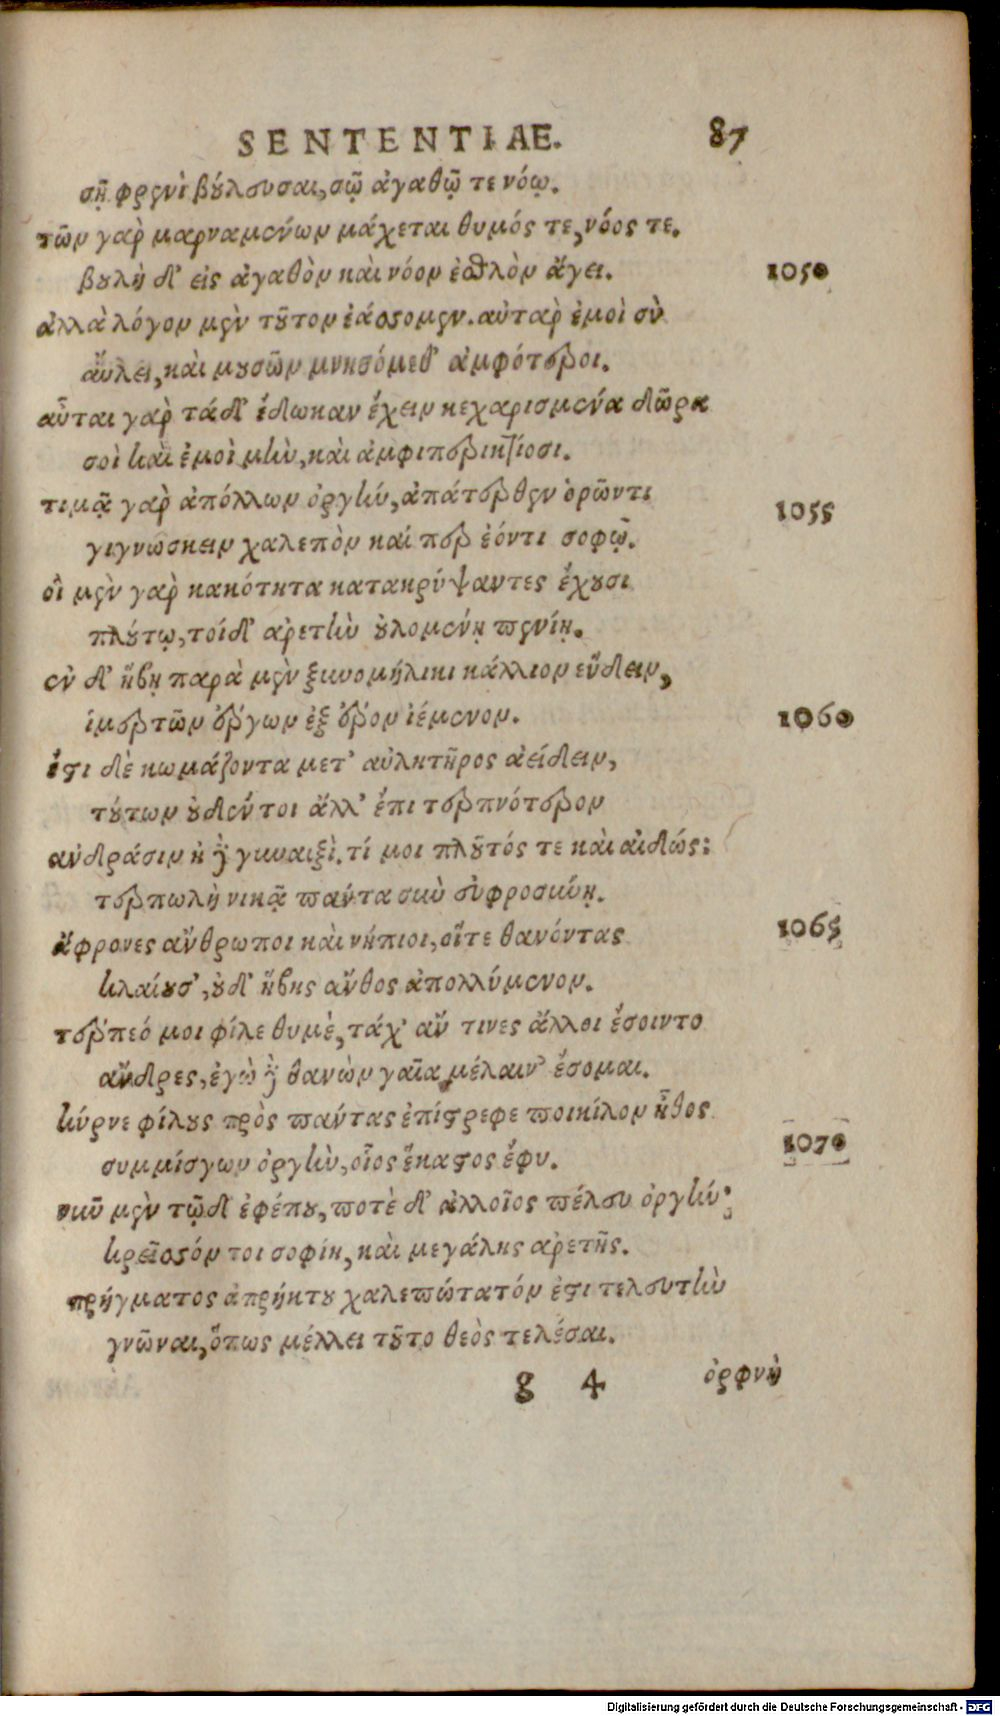 SENTENTIAE. 87
σῇ φρενὶ βούλευσαι, σῷ ἀγαθῷ τε νόῳ.
τῶν γὰρ μαρναμένων μάχεται θυμός τε, νόος τε.
βουλὴ δ' εἰς ἀγαθὸν καὶ νόον ἐσθλὸν ἄγει. 1050
ἀλλὰ λόγον μὲν τοῦτον ἐάσομεν. αὐτὰρ ἐμοὶ σὺ
αὔλει, καὶ μουσῶν μνησόμεθ' ἀμφότεροι.
αὗται γὰρ τάδ' ἔδωκαν ἔχειν κεχαρισμένα δῶρα
σοὶ καὶ ἐμοὶ μὴν, καὶ ἀμφιπερικτίοσι.
τιμᾷ γὰρ ἀπόλλων ὀργήν, ἀπάτερθεν ὁρῶντι 1055
γιγνώσκειν χαλεπὸν καί περ ἐόντι σοφῷ.
οἳ μὲν γὰρ κακότητα κατακρύψαντες ἔχουσι
πλούτῳ, τοί δ' ἀρετὴν οὐλομένῃ πενίῃ.
ἐν δ' ἥβῃ παρὰ μὲν ξυνομήλικι κάλλιον εὕδειν,
ἱμερτῶν ἔργων ἐξ ἔρον ἱέμενον. 1060
ἔστι δὲ κωμάζοντα μετ' αὐλητῆρος ἀείδειν,
τούτων οὐδέν τοι ἄλλ' ἔπι τερπνότερον
ἀνδράσιν ἠ δὲ γυναιξὶ. τί μοι πλοῦτός τε καὶ αἰδώς;
τερπωλὴ νικᾷ πάντα σὺν εὐφροσύνῃ.
ἄφρονες ἄνθρωποι καὶ νήπιοι, οἵτε θανόντας 1065
κλαίουσ', οὐδ' ἥβης ἄνθος ἀπολλύμενον.
τέρπεό μοι φίλε θυμὲ, τάχ' ἄν τινες ἄλλοι ἔσοιντο
ἄνδρες, ἐγὼ δὲ θανὼν γαῖα μέλαιν' ἔσομαι.
κύρνε φίλους πρὸς πάντας ἐπίστρεφε ποικίλον ἦθος
συμμίσγων ὀργὴν, οἷος ἕκαστος ἔφυ. 1070
νῦν μὲν τῷδ' ἐφέπου, ποτὲ δ' ἀλλοῖος πέλευ ὀργήν·
κρεῖσσόν τοι σοφίη, καὶ μεγάλης ἀρετῆς.
πρήγματος ἀπρήκτου χαλεπώτατόν ἐστι τελευτὴν
γνῶναι, ὅπως μέλλει τοῦτο θεὸς τελέσαι.
g 4 ὀρφνὴ
Digitalisierung gefördert durch die Deutsche Forschungsgemeinschaft - DFG